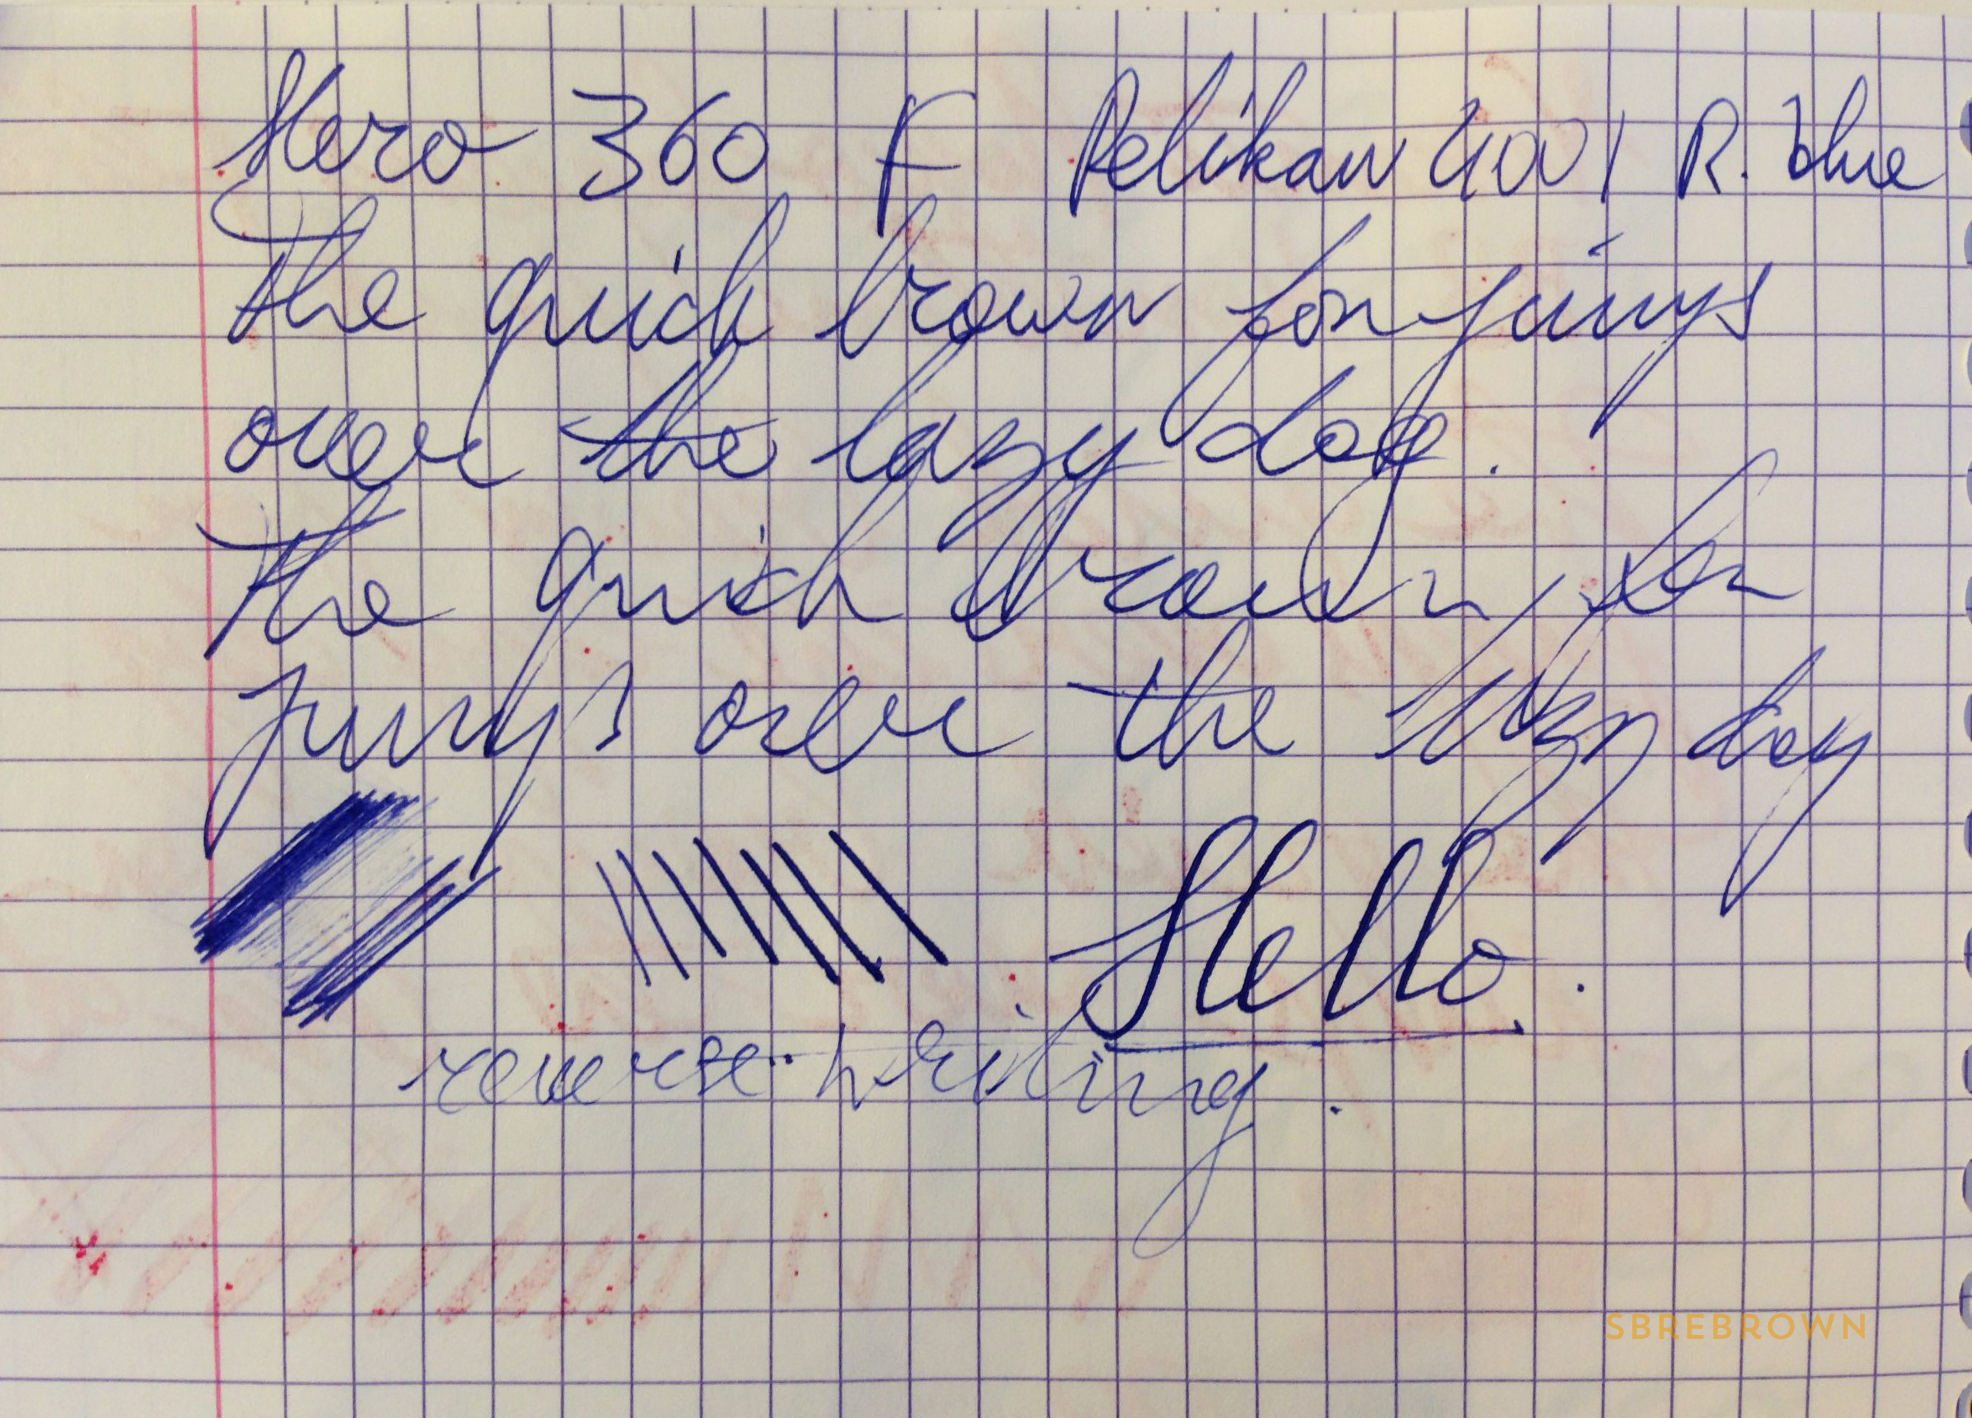 Hero 360 F Pelikan 4001 R. blue
The quick brown fox jumps
over the lazy dog.
The quick brown fox
jumps over the lazy dog
Hello.
reverse writing.
SBREBROWN